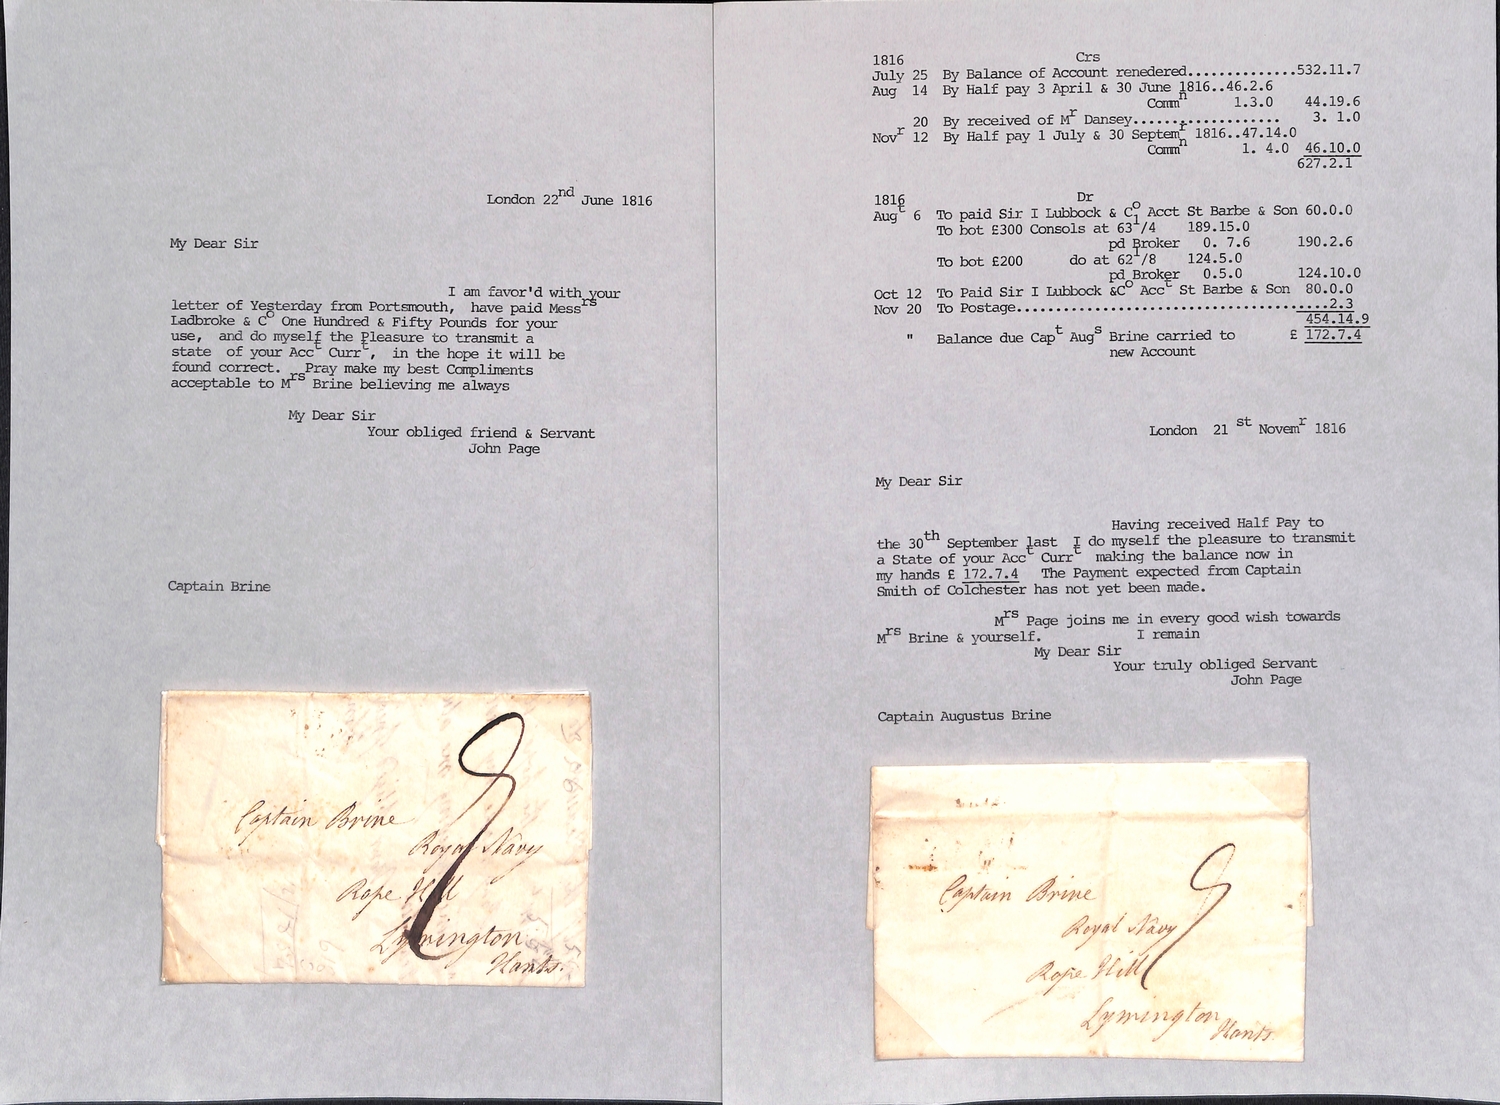 London 22nd June 1816
My Dear Sir
I am favor'd with your
letter of Yesterday from Portsmouth, have paid Messrs
Ladbroke & Co One Hundred & Fifty Pounds for your
use, and do myself the Pleasure to transmit a
state of your Acct Currt, in the hope it will be
found correct. Pray make my best Compliments
acceptable to Mrs Brine believing me always
My Dear Sir
Your obliged friend & Servant
John Page
Captain Brine
Captain Brine
Royal Navy
Rope Hill
Lymington
Hants.
1816 Crs
July 25 By Balance of Account renedered..............532.11.7
Aug 14 By Half pay 3 April & 30 June 1816..46.2.6
Commn 1.3.0 44.19.6
20 By received of Mr Dansey................... 3. 1.0
Novr 12 By Half pay 1 July & 30 Septemr 1816..47.14.0
Commn 1. 4.0 46.10.0
627.2.1
1816 Dr
Augt 6 To paid Sir I Lubbock & Co Acct St Barbe & Son 60.0.0
To bot £300 Consols at 63 1/4 189.15.0
pd Broker 0. 7.6 190.2.6
To bot £200 do at 62 1/8 124.5.0
pd Broker 0.5.0 124.10.0
Oct 12 To Paid Sir I Lubbock &Co Acct St Barbe & Son 80.0.0
Nov 20 To Postage........................................2.3
454.14.9
" Balance due Capt Augs Brine carried to £ 172.7.4
new Account
London 21st Novemr 1816
My Dear Sir
Having received Half Pay to
the 30th September last I do myself the pleasure to transmit
a State of your Acct Currt making the balance now in
my hands £ 172.7.4 The Payment expected from Captain
Smith of Colchester has not yet been made.
Mrs Page joins me in every good wish towards
Mrs Brine & yourself. I remain
My Dear Sir
Your truly obliged Servant
John Page
Captain Augustus Brine
Captain Brine
Royal Navy
Rope Hill
Lymington
Hants.